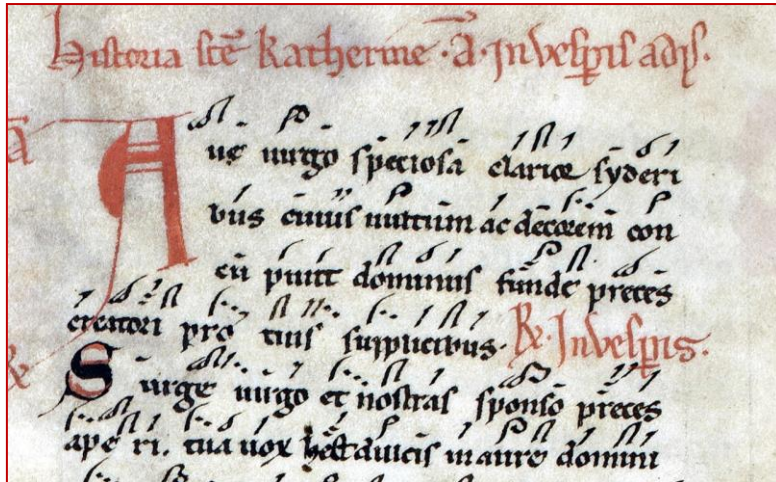 Historia scē Katherine · ā · Jn vesꝑis adpͥ.
Ave virgo speciosa clarior syderi
bus cuius vultum ac decorem con
cu pivit dominus funde preces
creatori pro tuis supplicibus. ℟. Jn vesꝑis.
Surge virgo et nostras sponso preces
ape ri. tua vox dulcis in aure domini